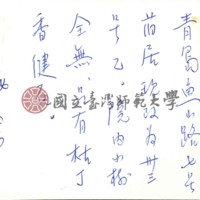 青島魚山路七号
居現改为卅三
号乙。院内小樹
全無,只有枯丁
香健在。
國立臺灣師範大學